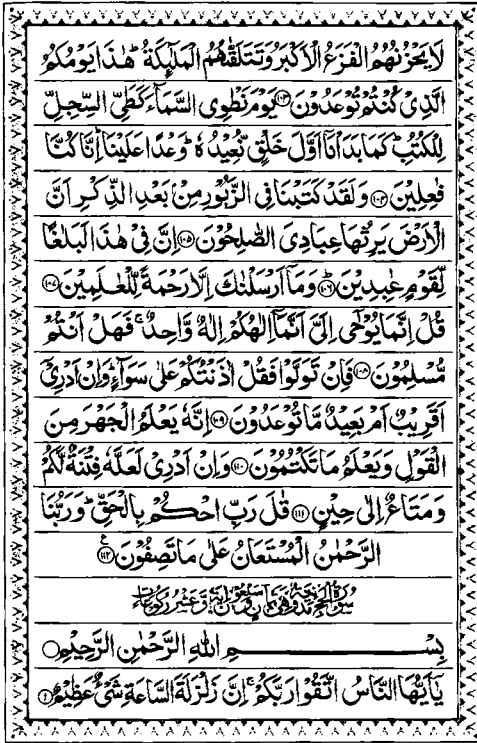 لَا يَحْزُنُهُمُ الْفَزَعُ الْاَكْبَرُ وَتَتَلَقّٰىهُمُ الْمَلٰٓئِكَةُ ؕ هٰذَا يَوْمُكُمُ
الَّذِىْ كُنْتُمْ تُوْعَدُوْنَ ﴿۱۰۳﴾ يَوْمَ نَطْوِى السَّمَآءَ كَطَىِّ السِّجِلِّ
لِلْكُتُبِ ؕ كَمَا بَدَاْنَاۤ اَوَّلَ خَلْقٍ نُّعِيْدُهٗ ؕ وَعْدًا عَلَيْنَا ؕ اِنَّا كُنَّا
فٰعِلِيْنَ ﴿۱۰۴﴾ وَلَقَدْ كَتَبْنَا فِى الزَّبُوْرِ مِنْۢ بَعْدِ الذِّكْرِ اَنَّ
الْاَرْضَ يَرِثُهَا عِبَادِىَ الصّٰلِحُوْنَ ﴿۱۰۵﴾ اِنَّ فِىْ هٰذَا لَبَلٰغًا
لِّقَوْمٍ عٰبِدِيْنَ ؕ ﴿۱۰۶﴾ وَمَاۤ اَرْسَلْنٰكَ اِلَّا رَحْمَةً لِّلْعٰلَمِيْنَ ﴿۱۰۷﴾
قُلْ اِنَّمَا يُوْحٰٓى اِلَىَّ اَنَّمَاۤ اِلٰهُكُمْ اِلٰهٌ وَّاحِدٌ ۚ فَهَلْ اَنْتُمْ
مُّسْلِمُوْنَ ﴿۱۰۸﴾ فَاِنْ تَوَلَّوْا فَقُلْ اٰذَنْتُكُمْ عَلٰى سَوَآءٍ ؕ وَاِنْ اَدْرِىْۤ
اَقَرِيْبٌ اَمْ بَعِيْدٌ مَّا تُوْعَدُوْنَ ﴿۱۰۹﴾ اِنَّهٗ يَعْلَمُ الْجَهْرَ مِنَ
الْقَوْلِ وَيَعْلَمُ مَا تَكْتُمُوْنَ ﴿۱۱۰﴾ وَاِنْ اَدْرِىْ لَعَلَّهٗ فِتْنَةٌ لَّكُمْ
وَمَتَاعٌ اِلٰى حِيْنٍ ﴿۱۱۱﴾ قٰلَ رَبِّ احْكُمْ بِالْحَقِّ ؕ وَرَبُّنَا
الرَّحْمٰنُ الْمُسْتَعَانُ عَلٰى مَا تَصِفُوْنَ ﴿۱۱۲﴾ ع
سُوْرَةُ الْحَجِّ مَدَنِيَّةٌ وَّهِىَ ثَمَانٌ وَّسَبْعُوْنَ اٰيَةً وَّعَشْرُ رُكُوْعَاتٍ
بِسْمِ اللّٰهِ الرَّحْمٰنِ الرَّحِيْمِ
يٰۤاَيُّهَا النَّاسُ اتَّقُوْا رَبَّكُمْ ۚ اِنَّ زَلْزَلَةَ السَّاعَةِ شَىْءٌ عَظِيْمٌ ﴿۱﴾